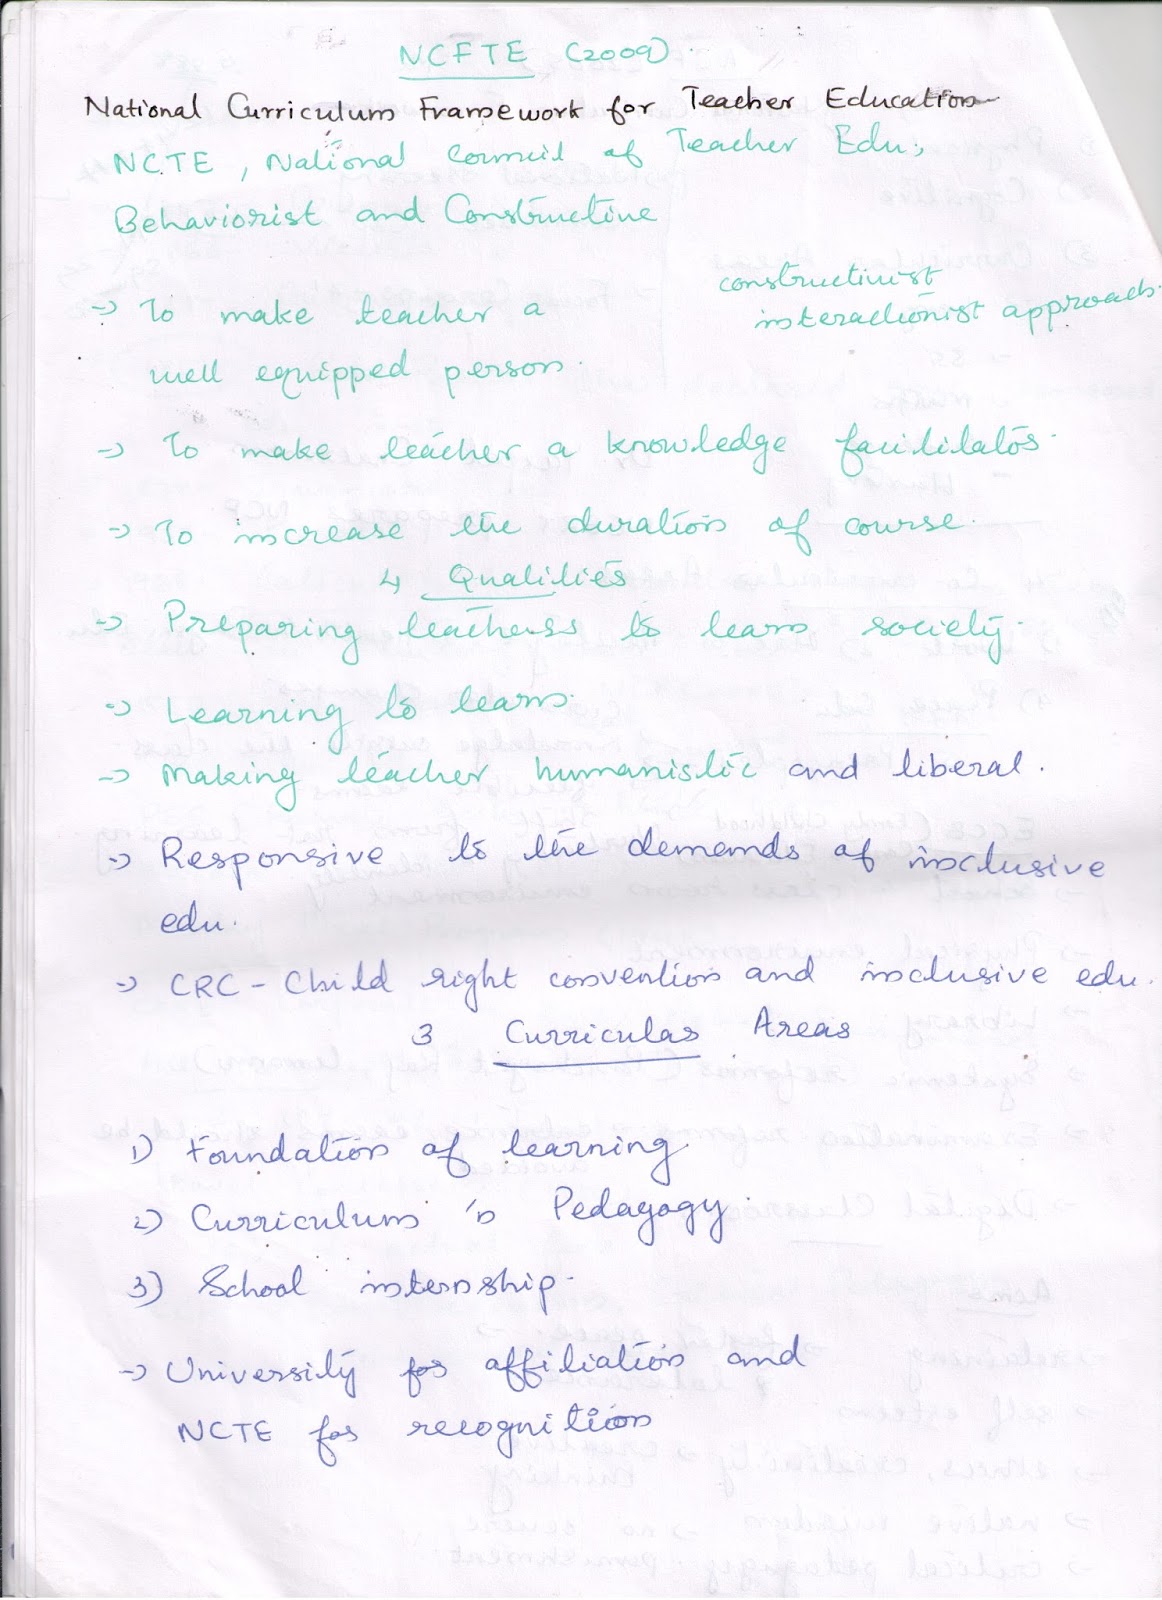 NCFTE (2009).
National Curriculum Framework for Teacher Education
NCTE, National Council of Teacher Edu.,
Behaviorist and Constructive
constructivist
interactionist approach.
→ To make teacher a
well equipped person.
→ To make teacher a knowledge facilitator.
→ To increase the duration of course.
4 Qualities
→ Preparing teachers to learn society.
→ Learning to learn.
→ Making teacher humanistic and liberal.
→ Responsive to the demands of inclusive
edu.
→ CRC - Child right convention and inclusive edu.
3 Curricular Areas
1) Foundation of learning
2) Curriculum 'n Pedagogy
3) School internship.
→ University for affiliation and
NCTE for recognition